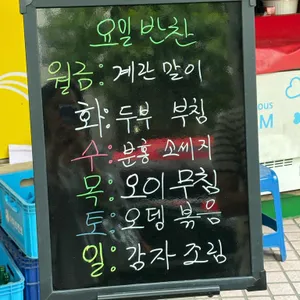 요일 반찬
월금: 계란 말이
화: 두부 부침
수: 분홍 소세지
목: 오이 무침
토: 오뎅 볶음
일: 감자 조림